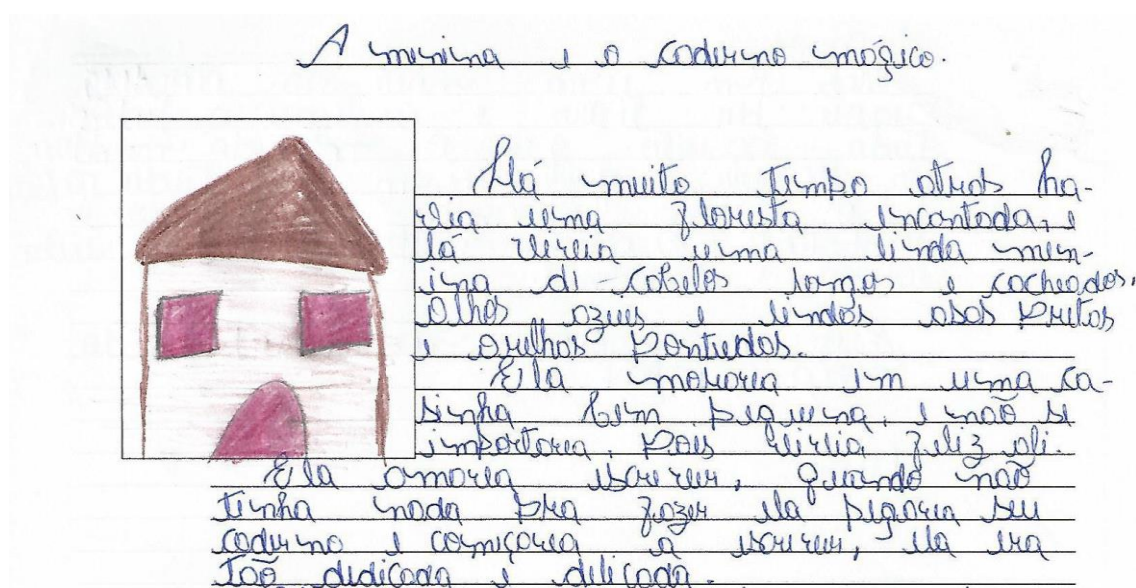 A menina e o caderno mágico.
Há muito tempo atrás ha-
via uma floresta encantada, e
lá vivia uma linda men-
ina de cabelos longos e cacheados,
olhos azuis e lindos asas pretas
e orelhas pontudas.
Ela morava em uma ca-
sinha bem pequena, e não se
importava, pois vivia feliz ali.
Ela amava escrever, quando não
tinha nada pra fazer ela pegava seu
caderno e começava a escrever, ela era
tão dedicada e delicada.